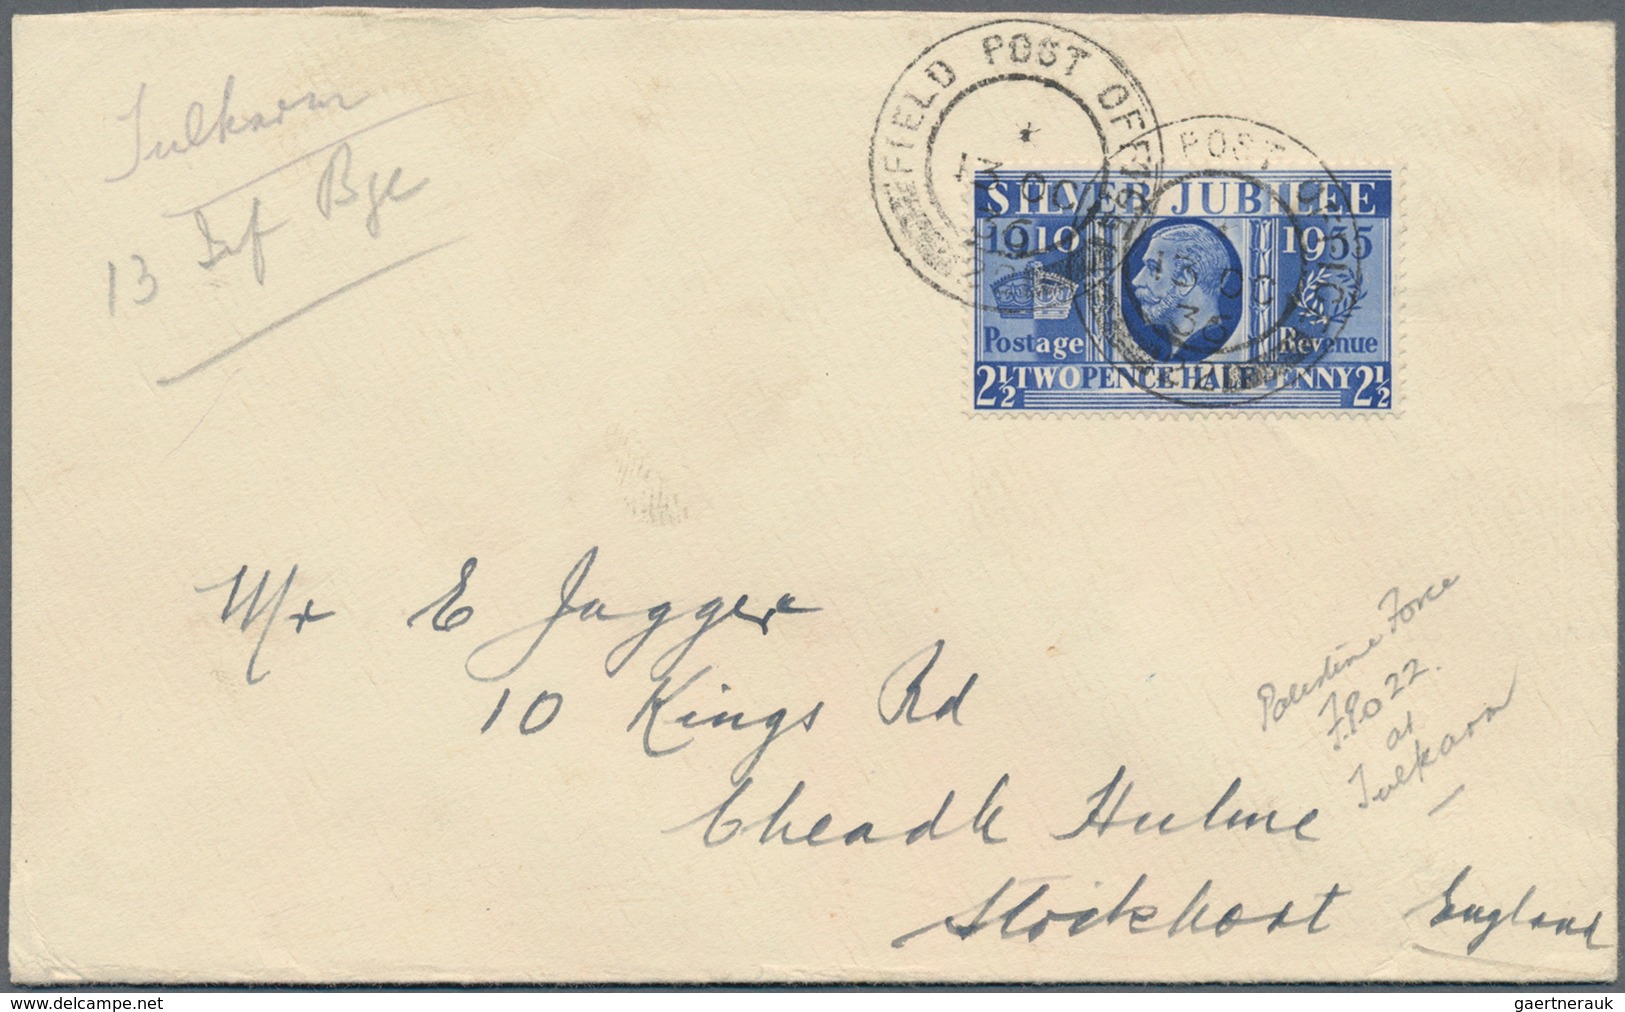 Tulkarm
13 Inf Bge
FIELD POST OFFICE
13 OC
36
POST OFFIC
13 OC
36
SILVER JUBILEE
1910 1935
Postage Revenue
2½ TWOPENCE HALFPENNY 2½
Mr E Jagger
10 Kings Rd
Cheadle Hulme
Stockport England
Palestine Force
F.P.O 22.
at
Tulkarm
gaertnerauk